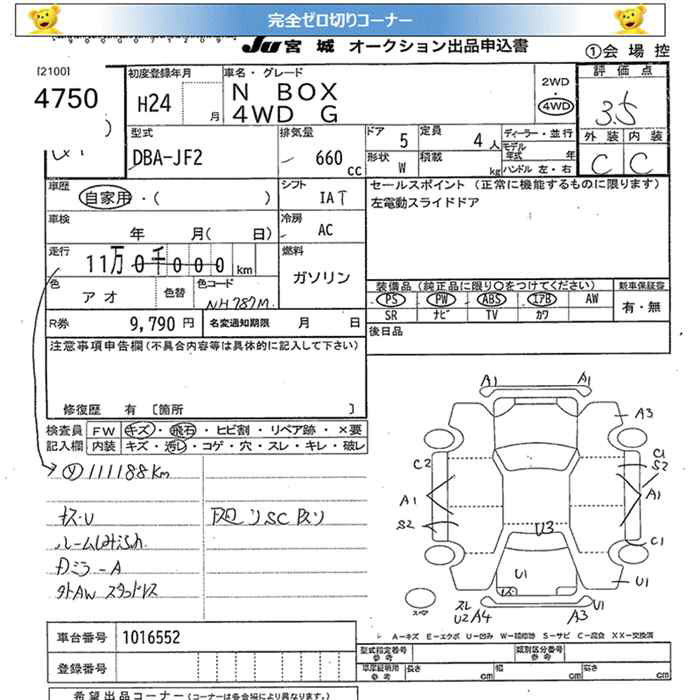 完全ゼロ切りコーナー
JU 宮城 オークション出品申込書 ①会場控
[2100] 初度登録年月 車名・グレード 2WD 評価点
4750 H24 月 N BOX 4WD 3.5
4WD G
型式 排気量 ドア 5 定員 4人 ディーラー・並行 外装 内装
DBA-JF2 660 cc 形状 W 積載 kg モデル年式 年 C C
ハンドル 左・右
車歴 自家用・( ) シフト IAT セールスポイント (正常に機能するものに限ります)
左電動スライドドア
車検 年 月( 日) 冷房 AC
走行 11万0千000km 燃料 ガソリン
色 アオ 色替 色コード NH787M 装備品(純正品に限り○をつけてください) 新車保証書
PS PW ABS エアB AW 有・無
SR ナビ TV カワ
R券 9,790円 名変通知期限 月 日 後日品
注意事項申告欄(不具合内容等は具体的に記入して下さい)
修復歴 有 [箇所 ]
検査員 FW キズ・飛石・ヒビ割・リペア跡・×要
記入欄 内装 キズ・汚レ・コゲ・穴・スレ・キレ・破レ
111188Km
キズ・U
A1 A1
A3
C2 C1
S2
A1 A1
S2
U3 C1
U1 U1
スペア
スレ U1
U2 A4 A3
A-キズ E-エクボ U-凹み W-補修跡 S-サビ C-腐食 XX-交換済
車台番号 1016552 型式指定番号 参考 類別区分番号 参考
登録番号 車庫証明用 参考 長さ cm 幅 cm 高さ cm
希望出品コーナー(コーナーは各会場により異なります。)